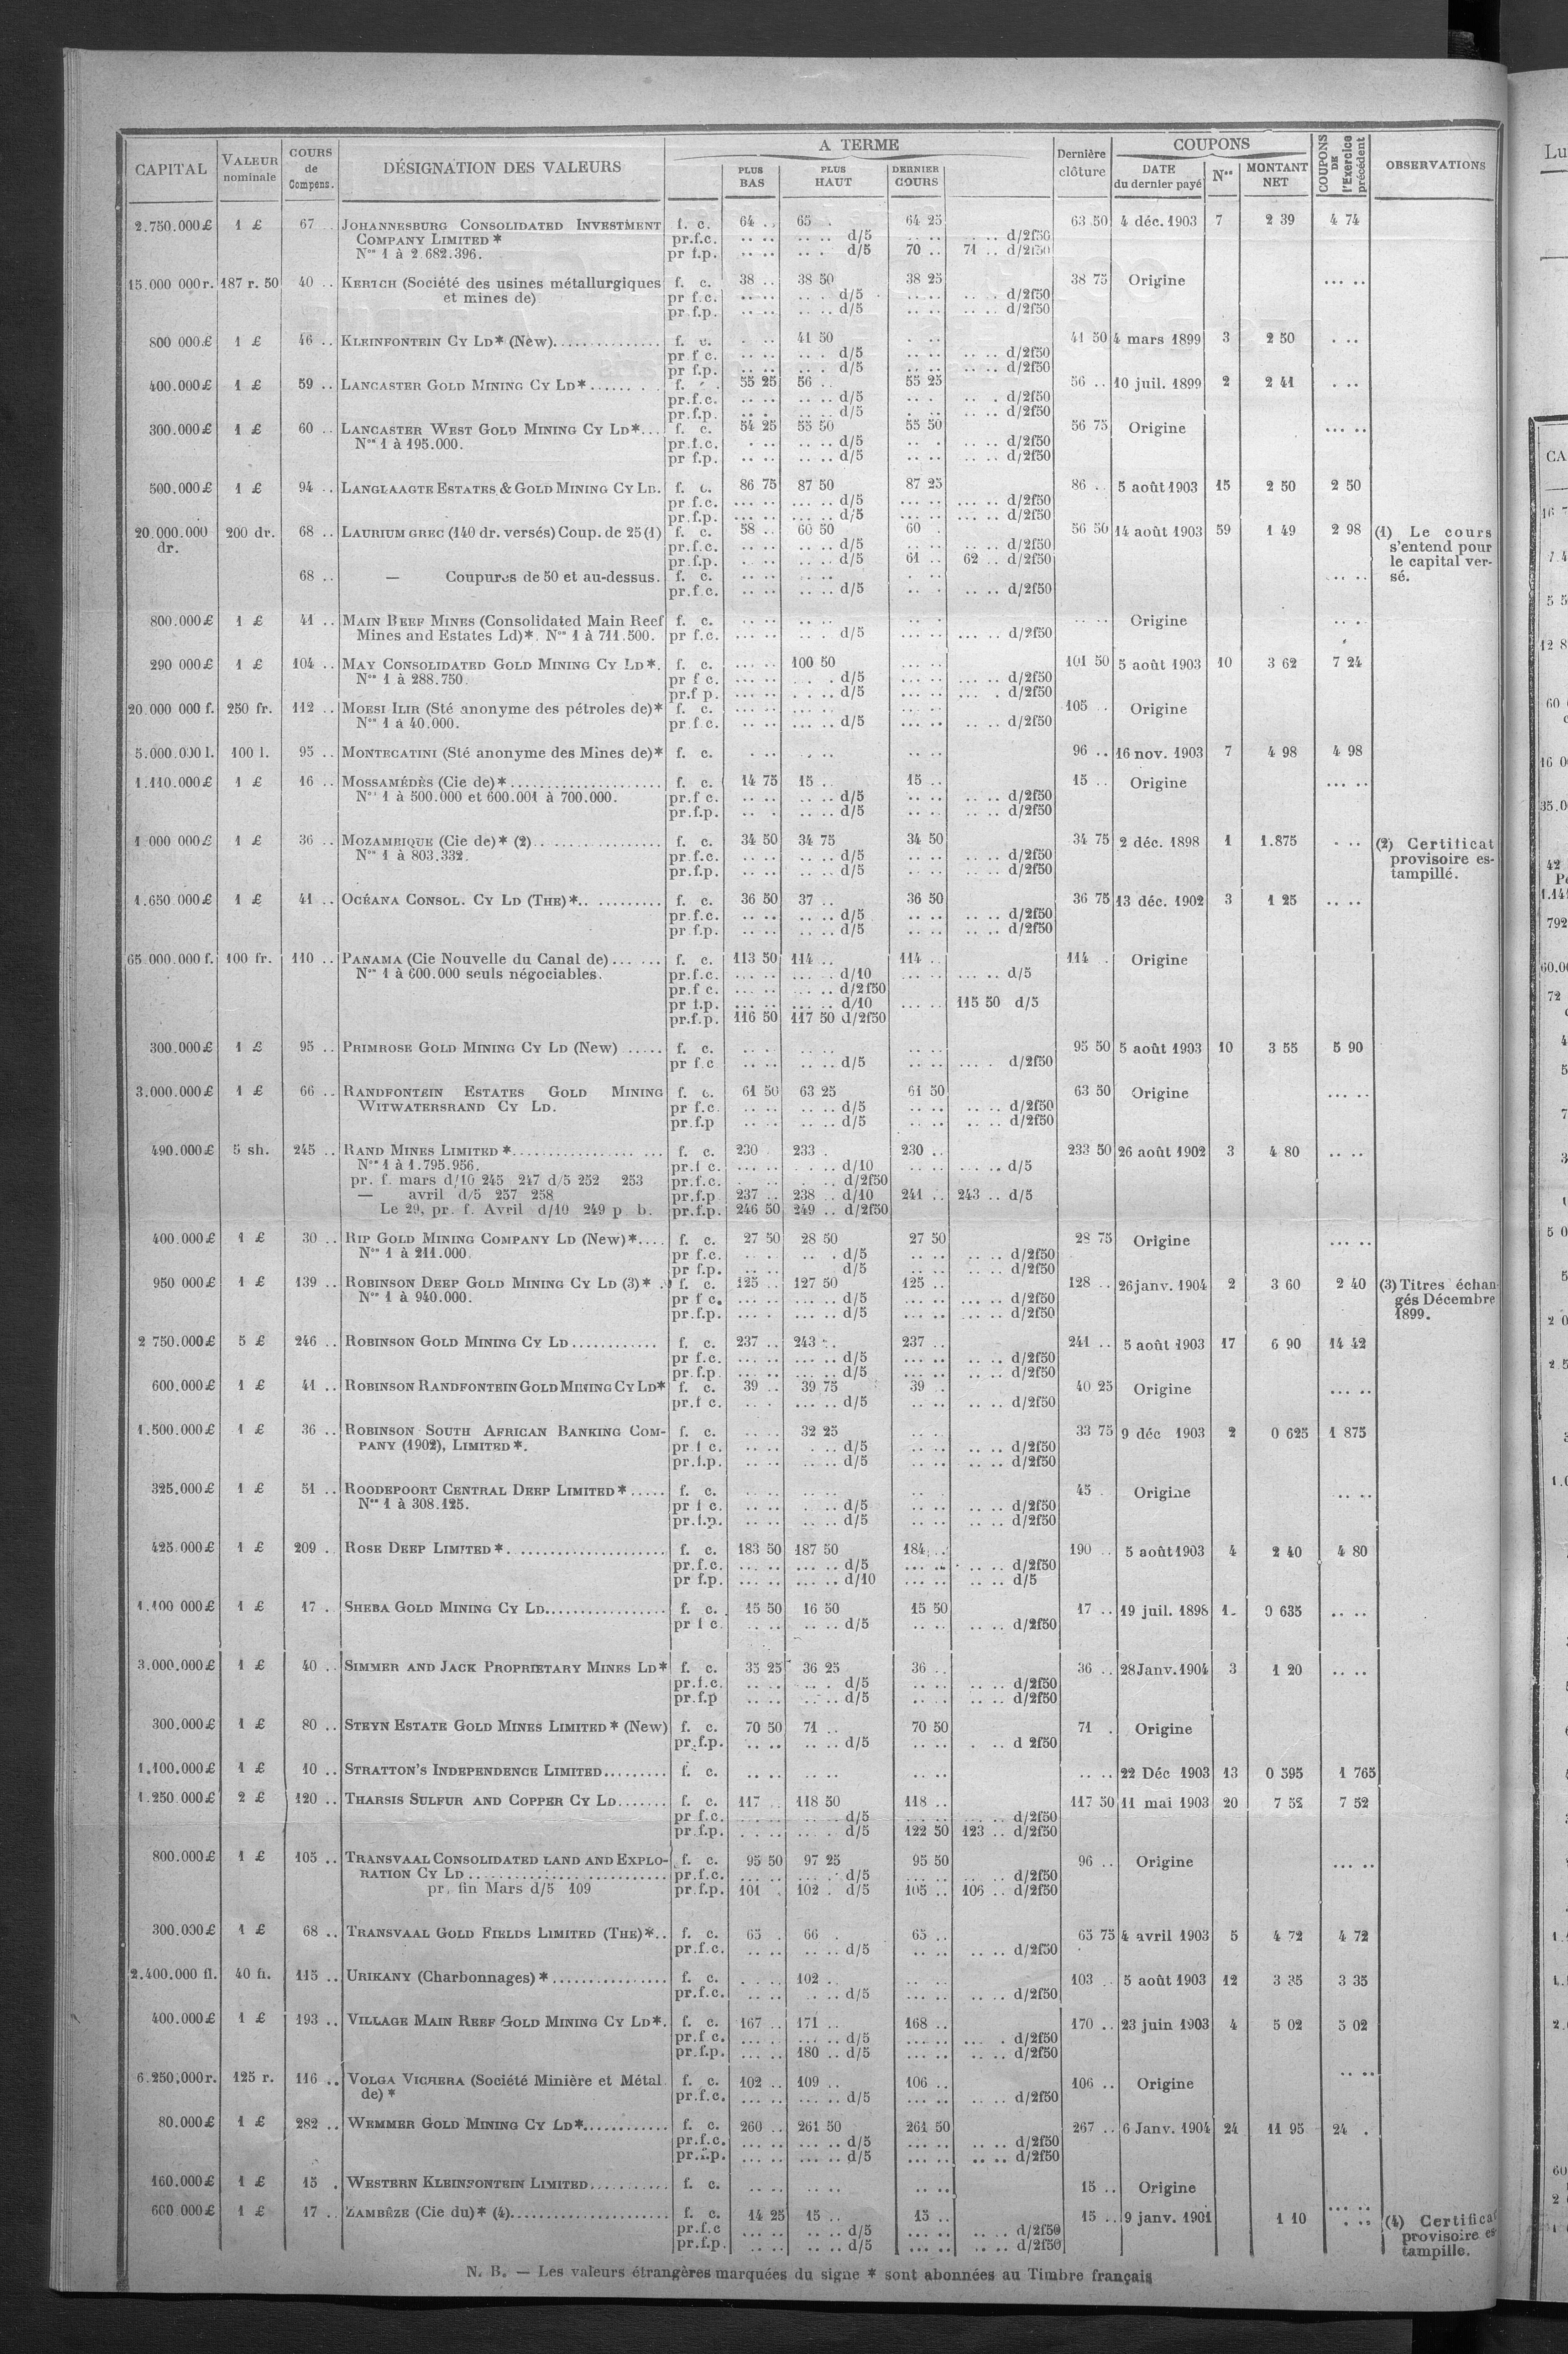 CAPITAL | VALEUR nominale | COURS de Compens. | DÉSIGNATION DES VALEURS | A TERME | PLUS BAS | PLUS HAUT | DERNIER COURS | Dernière clôture | COUPONS | DATE du dernier payé | Nos | MONTANT NET | COUPONS DE l'Exercice précédent | OBSERVATIONS
2.750.000£ 1 £ 67 .. JOHANNESBURG CONSOLIDATED INVESTMENT f. c. 64 .. 65 . 64 25 63 50 4 déc. 1903 7 2 39 4 74
COMPANY LIMITED * pr.f.c. .. .. .. .. d/5 .. .. .. .. d/2f50
Nos 1 à 2.682.396. pr f.p. .. .. .. . d/5 70 .. 71 .. d/2f50
15.000 000r. 187 r. 50 40 .. KERTCH (Société des usines métallurgiques f. c. 38 .. 38 50 38 25 38 75 Origine ... ..
et mines de) pr f.c. .. .. .. . d/5 .. .. .. . d/2f50
pr f.p. .. .. .. .. d/5 .. .. .. .. d/2f50
800 000£ 1 £ 46 .. KLEINFONTEIN CY LD* (New).............. f. c. . .. 41 50 . .. 41 50 4 mars 1899 3 2 50 . ..
pr f c. .. .. .. . d/5 .. .. .. .. d/2f50
pr f.p. .. .. .. . d/5 .. .. .. .. d/2f50
400.000£ 1 £ 59 .. LANCASTER GOLD MINING CY LD*...... . . f. 55 25 56 .. 55 25 56 .. 10 juil. 1899 2 2 41 . ..
pr.f.c. .. .. .. .. d/5 .. . .. . d/2f50
pr.f.p. .. . .. .. d/5 . .. .. .. d/2f50
300.000£ 1 £ 60 .. LANCASTER WEST GOLD MINING CY LD*... f. c. 54 25 55 50 55 50 56 75 Origine ... ..
Nos 1 à 195.000. pr.f.c. . .. .. .. d/5 .. . .. .. d/2f50
pr f.p. .. .. .. .. d/5 .. .. .. .. d/2f50
500.000£ 1 £ 94 .. LANGLAAGTE ESTATES & GOLD MINING CY LD. f. c. 86 75 87 50 87 25 86 . 5 août 1903 15 2 50 2 50
pr f.c. ... .. ... .. d/5 ... .. ... .. d/2f50
pr.f.p. ... .. ... .. d/5 ... .. ... .. d/2f50
20.000.000 dr. 200 dr. 68 .. LAURIUM GREC (140 dr. versés) Coup. de 25 (1) f. c. 58 .. 60 50 60 . 56 50 14 août 1903 59 1 49 2 98 (1) Le cours
pr.f.c. .. .. .. .. d/5 .. .. .. .. d/2f50 s'entend pour
pr.f.p. . .. .. .. d/5 61 .. 62 .. d/2f50 le capital ver-
68 .. — Coupures de 50 et au-dessus. f. c. .. .. .. .. . .. .. .. sé.
pr.f.c. .. .. .. .. d/5 .. . .. .. d/2f50
800.000£ 1 £ 41 .. MAIN REEF MINES (Consolidated Main Reef f. c. .. .. .. .. .. .. .. .. Origine .. .
Mines and Estates Ld)*. Nos 1 à 711.500. pr f.c. ... .. .. . d/5 ... .. ... .. d/2f50
290 000£ 1 £ 104 .. MAY CONSOLIDATED GOLD MINING CY LD*. f. c. ... .. 100 50 ... .. 101 50 5 août 1903 10 3 62 7 24
Nos 1 à 288.750. pr f c. ... .. . .. . d/5 ... .. ... .. d/2f50
pr.f p. ... .. . .. . d/5 ... .. ... . d/2f50
20.000 000 f. 250 fr. 112 .. MOESI ILIR (Sté anonyme des pétroles de)* f. c. ... .. ... .. ... .. 105 .. Origine
Nos 1 à 40.000. pr f.c. ... .. ... .. d/5 ... .. .. .. d/2f50
5.000.000 l. 100 l. 95 .. MONTECATINI (Sté anonyme des Mines de)* f. c. . .. . .. .. .. 96 .. 16 nov. 1903 7 4 98 4 98
1.110.000£ 1 £ 16 .. MOSSAMÉDÈS (Cie de)*.................... f. c. 14 75 15 . 15 .. 15 .. Origine ... ..
Nos 1 à 500.000 et 600.001 à 700.000. pr.f c. .. .. .. .. d/5 .. .. .. .. d/2f50
pr.f.p. .. . .. .. d/5 .. .. .. .. d/2f50
1 000 000£ 1 £ 36 .. MOZAMBIQUE (Cie de)* (2)................. f. c. 34 50 34 75 34 50 34 75 2 déc. 1898 1 1.875 . .. (2) Certificat
Nos 1 à 803.332. pr f.c. .. .. .. .. d/5 .. .. .. .. d/2f50 provisoire es-
pr.f.p. .. .. .. .. d/5 .. .. .. .. d/2f50 tampillé.
1.650 000£ 1 £ 41 .. OCÉANA CONSOL. CY LD (THE)*.. ......... f. c. 36 50 37 .. 36 50 36 75 13 déc. 1902 3 1 25 .. ..
pr f.c. .. .. .. .. d/5 .. .. .. .. d/2f50
pr f.p. .. .. .. .. d/5 .. .. .. .. d/2f50
65.000.000 f. 100 fr. 110 .. PANAMA (Cie Nouvelle du Canal de)... ... f. c. 113 50 114 .. 114 .. 114 . Origine
Nos 1 à 600.000 seuls négociables. pr.f.c. ... .. ... .. d/10 ... .. ... .. d/5
pr.f c. ... .. ... .. d/2f50
pr f.p. ... .. ... .. d/10 ... .. 115 50 d/5
pr.f.p. 116 50 117 50 d/2f50
300.000£ 1 £ 95 .. PRIMROSE GOLD MINING CY LD (New) ..... f. c. .. .. .. .. .. .. 95 50 5 août 1903 10 3 55 5 90
pr f.c .. .. .. .. d/5 .. .. ... . d/2f50
3.000.000£ 1 £ 66 .. RANDFONTEIN ESTATES GOLD MINING f. c. 61 50 63 25 61 50 63 50 Origine ... ..
WITWATERSRAND CY LD. pr f.c. .. .. .. .. d/5 .. .. .. .. d/2f50
pr.f.p .. .. .. .. d/5 .. .. .. .. d/2f50
490.000£ 5 sh. 245 .. RAND MINES LIMITED *................ ... f. c. 230 . 233 . 230 .. 233 50 26 août 1902 3 4 80 .. ..
Nos 1 à 1.795.956. pr.f c. ... .. . .. d/10 ... .. ... .. d/5
pr. f. mars d/10 245 247 d/5 252 253 pr.f.c. . .. . .. d/2f50
— avril d/5 257 258 pr.f.p 237 .. 238 .. d/10 241 .. 243 .. d/5
Le 29, pr. f. Avril d/10 249 p. b. pr.f.p. 246 50 249 .. d/2f50
400.000£ 1 £ 30 .. RIP GOLD MINING COMPANY LD (New)*.... f. c. 27 50 28 50 27 50 28 75 Origine ... ..
Nos 1 à 211.000. pr f.c. .. . .. d/5 .. .. .. .. d/2f50
pr f.p. .. .. d/5 .. .. .. .. d/2f50
950 000£ 1 £ 139 .. ROBINSON DEEP GOLD MINING CY LD (3)* .. f. c. 125 .. 127 50 125 .. 128 .. 26 janv. 1904 2 3 60 2 40 (3) Titres échan
Nos 1 à 940.000. pr f c. ... .. ... .. d/5 ... .. ... .. d/2f50 gés Décembre
pr.f.p. ... . ... .. d/5 ... .. ... .. d/2f50 1899.
2 750.000£ 5 £ 246 .. ROBINSON GOLD MINING CY LD ............ f. c. 237 .. 243 .. 237 .. 241 .. 5 août 1903 17 6 90 14 42
pr f.c. ... .. ... .. d/5 ... .. .. .. d/2f50
pr f.p. ... .. ... .. d/5 ... .. .. .. d/2f50
600.000£ 1 £ 41 .. ROBINSON RANDFONTEIN GOLD MINING CY LD* f. c. 39 .. 39 75 39 .. 40 25 Origine ... ..
pr.f c. .. . ... .. d/5 .. .. .. .. d/2f50
1.500.000£ 1 £ 36 .. ROBINSON SOUTH AFRICAN BANKING COM- f. c. .. .. 32 25 .. .. 33 75 9 déc 1903 2 0 625 1 875
PANY (1902), LIMITED *. pr f c. .. .. . .. d/5 .. .. .. .. d/2f50
pr.f.p. .. .. .. .. d/5 .. .. .. .. d/2f50
325.000£ 1 £ 51 .. ROODEPOORT CENTRAL DEEP LIMITED *..... f. c. .. .. .. .. .. .. 45 . Origine .. ..
Nos 1 à 308.125. pr f c. .. .. . .. d/5 .. .. .. .. d/2f50
pr.f.p. .. .. .. .. d/5 .. .. .. .. d/2f50
425.000£ 1 £ 209 . ROSE DEEP LIMITED *. .................... f. c. 183 50 187 50 184 .. 190 .. 5 août 1903 4 2 40 4 80
pr.f.c. ... .. ... .. d/5 ... .. .. .. d/2f50
pr f.p. ... .. ... .. d/10 ... .. .. .. d/5
1.100 000£ 1 £ 17 . SHEBA GOLD MINING CY LD................. f. c. 15 50 16 50 15 50 17 .. 19 juil. 1898 1 0 635 .. ..
pr f c. .. .. .. .. d/5 .. .. .. .. d/2f50
3.000.000£ 1 £ 40 .. SIMMER AND JACK PROPRIETARY MINES LD* f. c. 35 25 36 25 36 .. 36 .. 28 Janv. 1904 3 1 20 .. ..
pr.f.c. .. .. .. . d/5 .. .. .. .. d/2f50
pr f.p .. .. .. .. d/5 .. .. .. .. d/2f50
300.000£ 1 £ 80 .. STEYN ESTATE GOLD MINES LIMITED * (New) f. c. 70 50 71 .. 70 50 71 . Origine
pr.f.p. .. .. .. .. d/5 .. .. . .. d 2f50
1.100.000£ 1 £ 10 .. STRATTON'S INDEPENDENCE LIMITED......... f. c. .. .. .. .. .. .. .. .. 22 Déc 1903 13 0 595 1 765
1.250.000£ 2 £ 120 .. THARSIS SULFUR AND COPPER CY LD....... f. c. 117 .. 118 50 118 .. 117 50 11 mai 1903 20 7 52 7 52
pr f.c. ... .. ... .. d/5 ... .. ... .. d/2f50
pr f.p. . .. .. . d/5 122 50 123 .. d/2f50
800.000£ 1 £ 105 .. TRANSVAAL CONSOLIDATED LAND AND EXPLO- f. c. 95 50 97 25 95 50 96 .. Origine ... ..
RATION CY LD ........................... pr.f.c. ... .. ... . d/5 ... .. .. .. d/2f50
pr. fin Mars d/5 109 pr.f.p. 101 . 102 . d/5 105 .. 106 .. d/2f50
300.000£ 1 £ 68 .. TRANSVAAL GOLD FIELDS LIMITED (THE)*.. f. c. 65 . 66 . 65 .. 65 75 4 avril 1903 5 4 72 4 72
pr.f.c. .. .. .. .. d/5 .. .. .. .. d/2f50
2.400.000 fl. 40 fl. 115 .. URIKANY (Charbonnages) *................ f. c. . .. 102 .. .. .. 103 .. 5 août 1903 12 3 35 3 35
pr.f.c. .. .. . .. d/5 ... .. .. .. d/2f50
400.000£ 1 £ 193 .. VILLAGE MAIN REEF GOLD MINING CY LD*. f. c. 167 .. 171 .. 168 .. 170 .. 23 juin 1903 4 5 02 5 02
pr.f c. ... .. ... .. d/5 ... .. ... . d/2f50
pr.f.p. ... .. 180 .. d/5 ... .. .. .. d/2f50
6.250.000r. 125 r. 116 .. VOLGA VICHERA (Société Minière et Métal. f. c. 102 .. 109 .. 106 .. 106 .. Origine .. ..
de) * pr.f.c. ... .. ... .. d/5 ... .. .. .. d/2f50
80.000£ 1 £ 282 .. WEMMER GOLD MINING CY LD*............ f. c. 260 .. 261 50 261 50 267 .. 6 Janv. 1904 24 11 95 24 .
pr.f.c. ... .. ... .. d/5 ... .. .. .. d/2f50
pr.f.p. ... .. ... .. d/5 ... .. .. .. d/2f50
160.000£ 1 £ 15 . WESTERN KLEINFONTEIN LIMITED........... f. c. .. .. .. .. .. .. 15 .. Origine
600 000£ 1 £ 17 .. ZAMBÈZE (Cie du)* (4)....................... f. c. 14 25 15 .. 15 .. 15 .. 9 janv. 1901 1 10 . .. (4) Certificat
pr.f.c ... .. .. .. d/5 ... .. .. .. d/2f50 provisoire es
pr.f.p. .. .. .. .. d/5 ... .. .. .. d/2f50 tampille.
N. B. — Les valeurs étrangères marquées du signe * sont abonnées au Timbre français